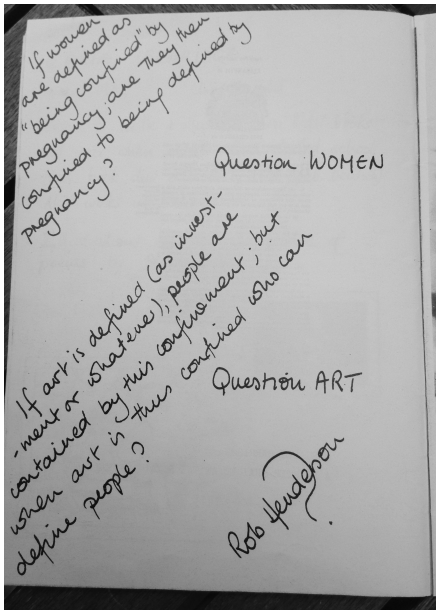 If women
are defined as
"being confined" by
pregnancy; are they then
confined to being defined by
pregnancy?
Question WOMEN
If art is defined (as invest-
-ment or whatever), people are
contained by this confinement; but
when art is thus confined who can
define people?
Question ART
Rob Henderson